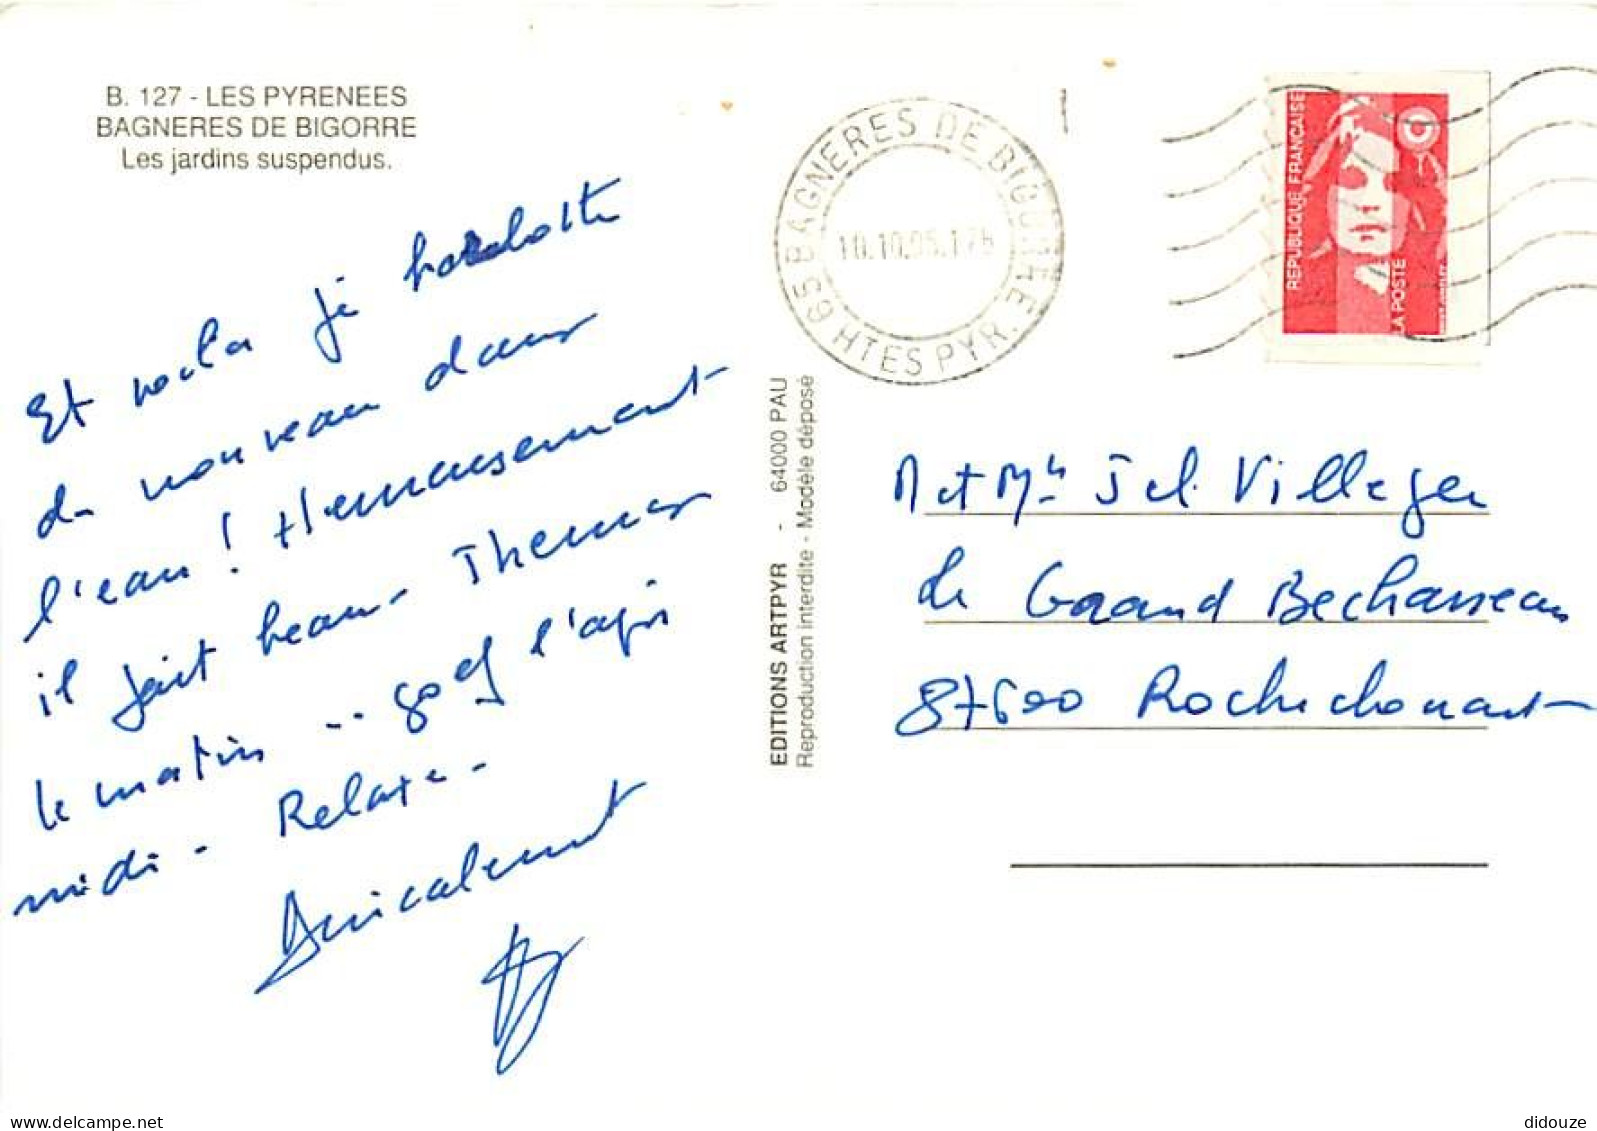 B. 127 - LES PYRENEES
BAGNERES DE BIGORRE
Les jardins suspendus.
Et voila je barbotte
de nouveau dans
l'eau ! Heureusement
il fait beau - Thermes
le matin .. golf l'après
midi - Relaxe -
Amicalement
EDITIONS ARTPYR - 64000 PAU
Reproduction interdite - Modèle déposé
65 BAGNERES DE BIGORRE
HTES PYR.
10.10.95.17h
REPUBLIQUE FRANÇAISE
LA POSTE
M et Mme J cl. Villeger
le Grand Bechasseau
87600 Rochechouart
didouze
delcampe.net